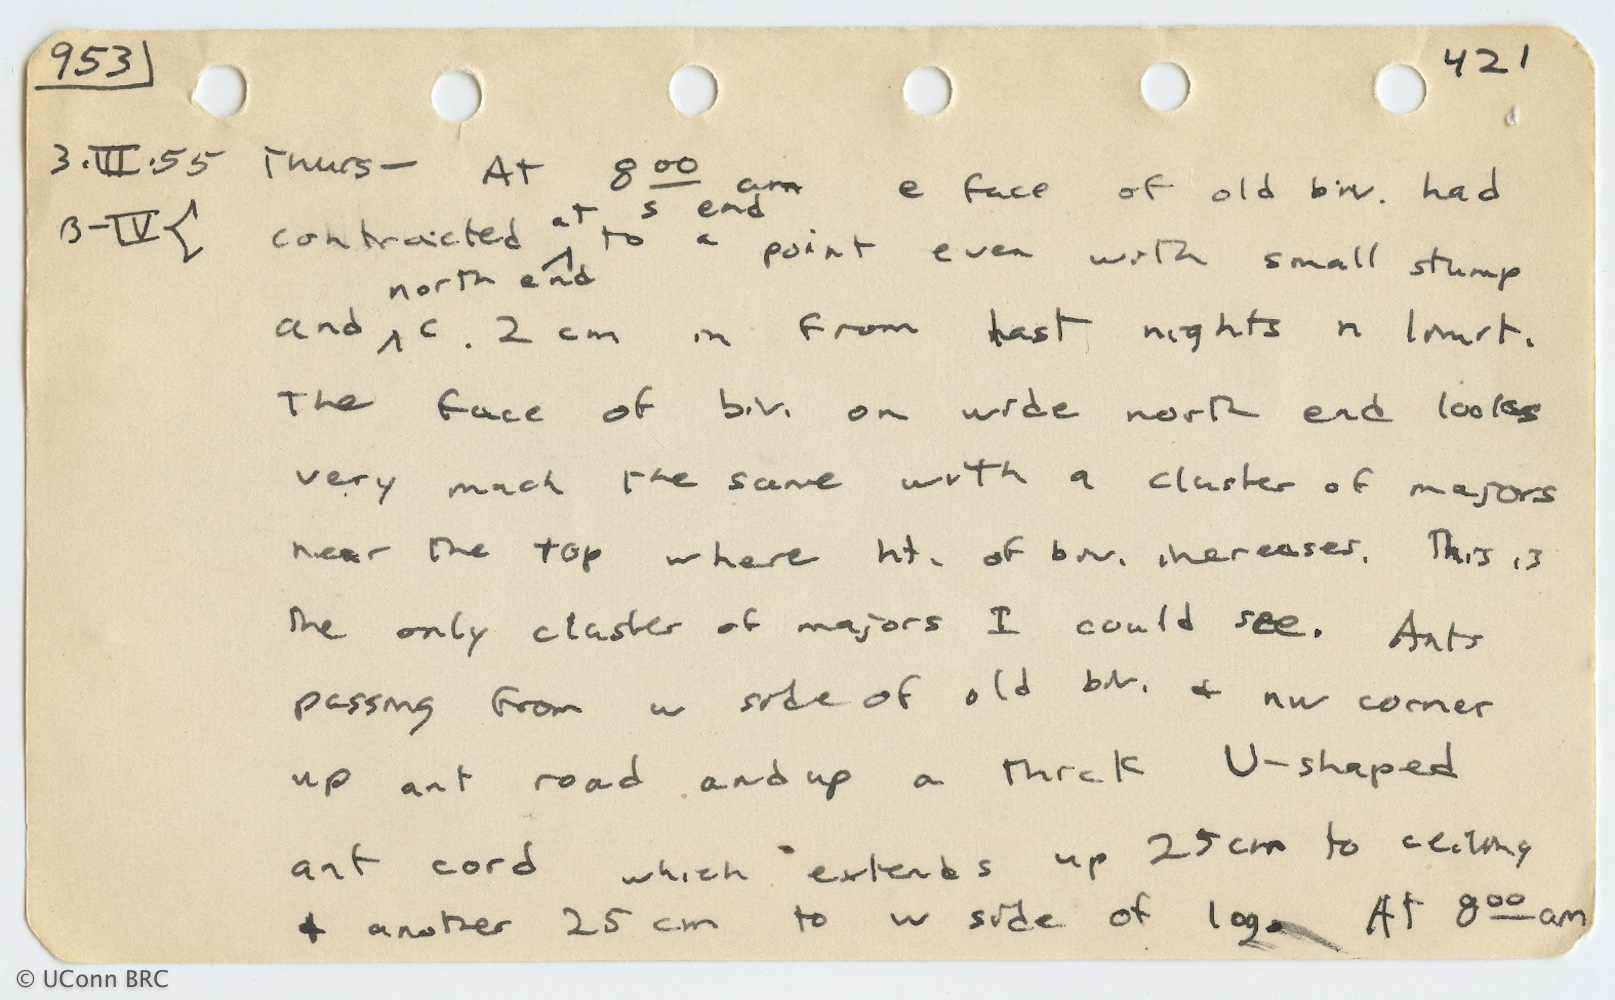 953
421
3.III.55 Thurs— At 8 00 am e face of old biv. had
B-IV{ contracted at s end to a point even with small stump
and north end c. 2 cm in from last nights n limit.
The face of biv. on wide north end looks
very much the same with a cluster of majors
near the top where ht. of biv. increases. This is
the only cluster of majors I could see. Ants
passing from w side of old biv. & nw corner
up ant road and up a thick U-shaped
ant cord which extends up 25 cm to ceiling
& another 25 cm to w side of log. At 8 00 am
© UConn BRC